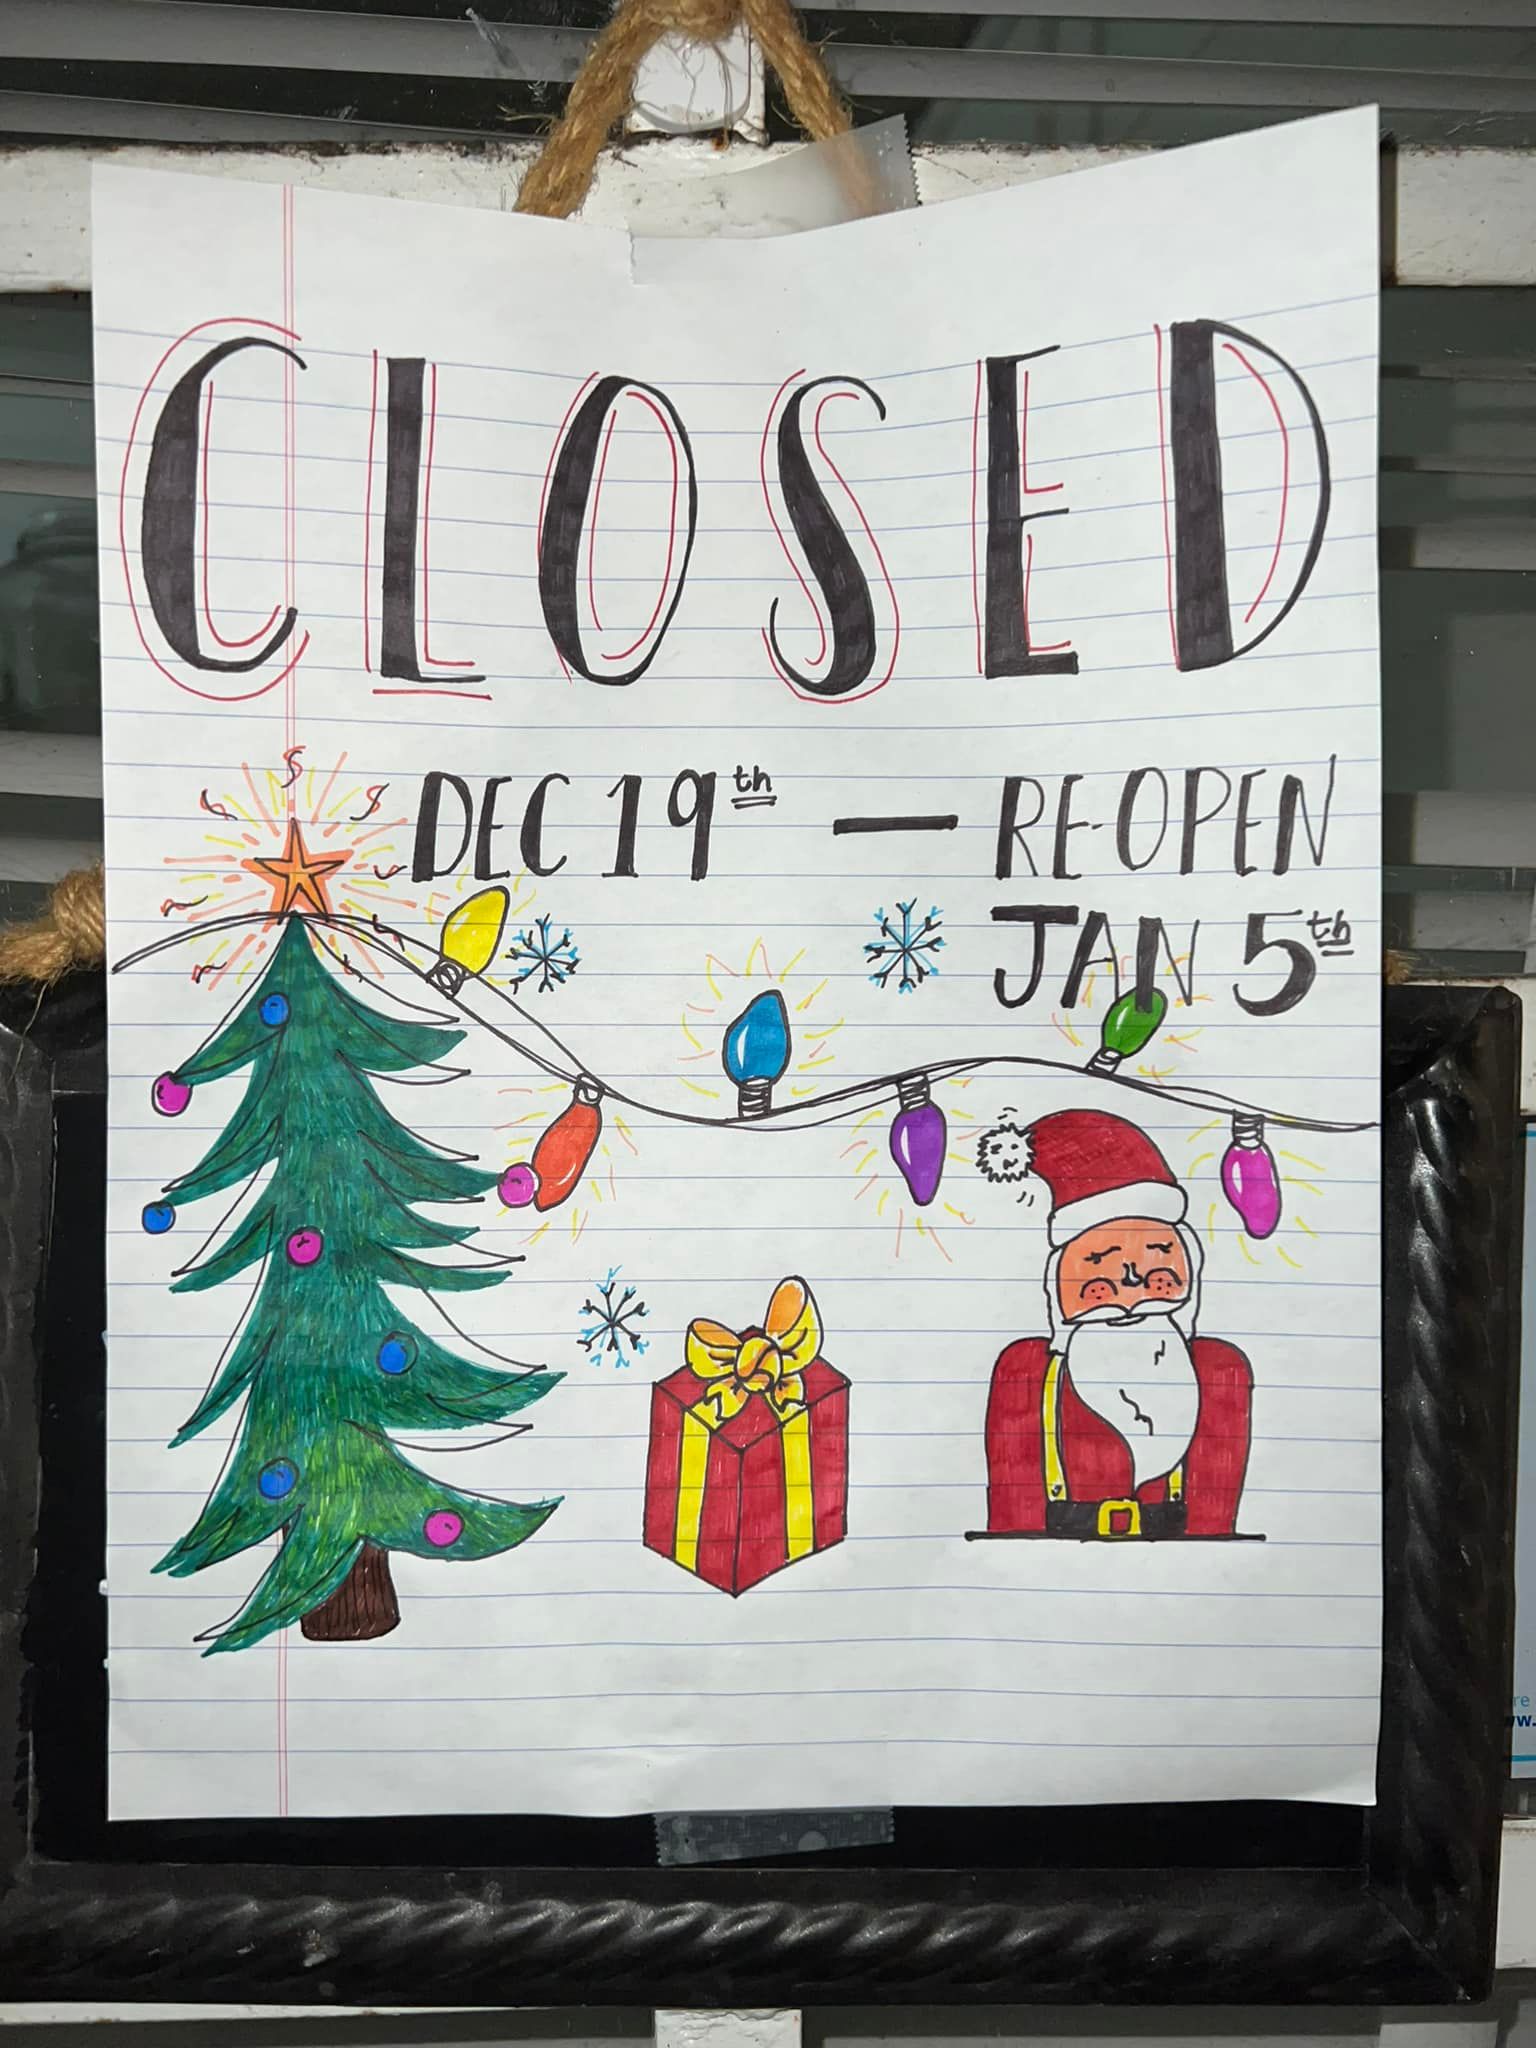 CLOSED
DEC 19th — RE-OPEN
JAN 5th